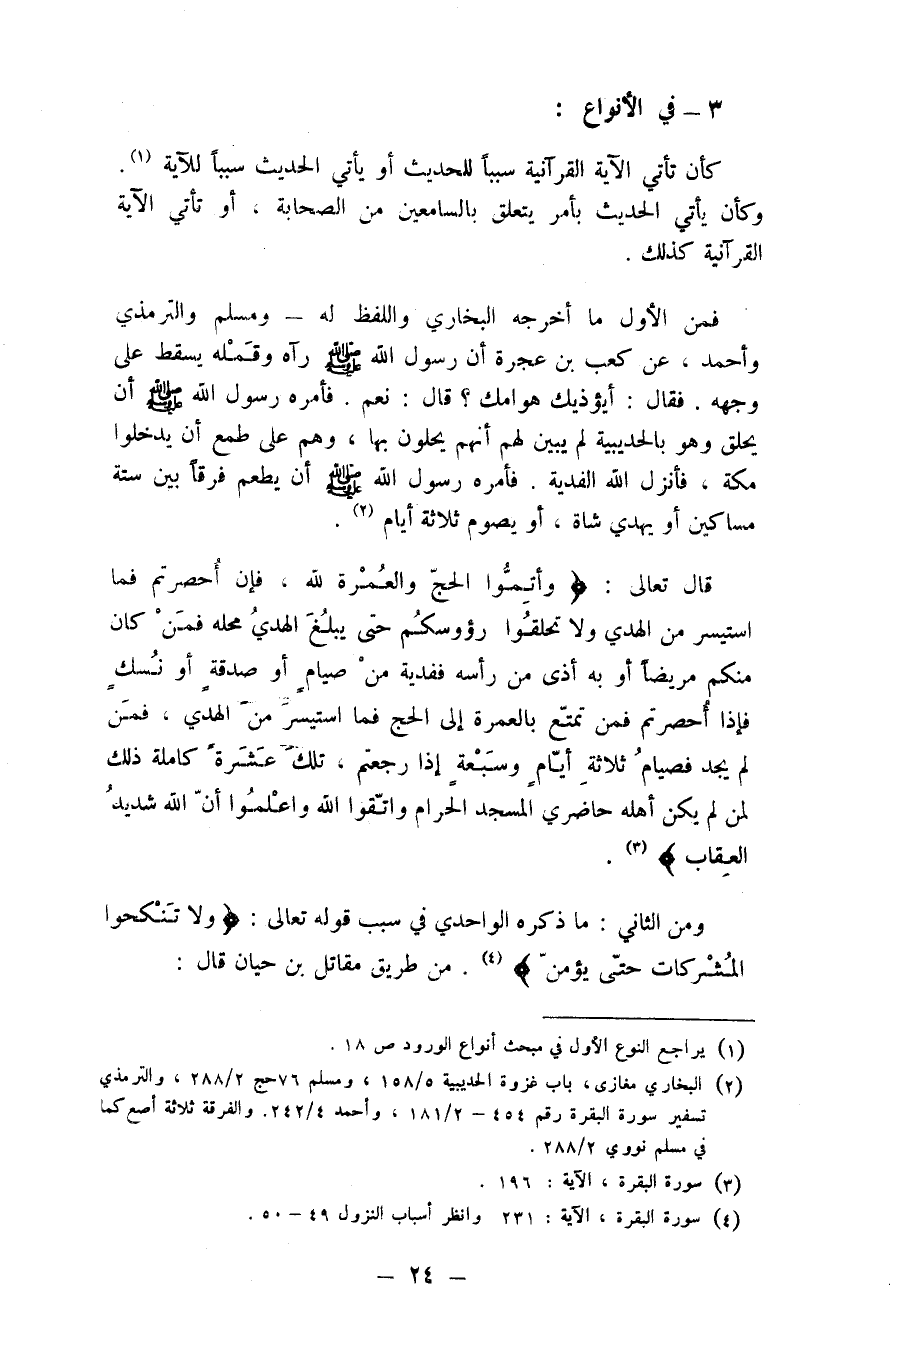 ٣ ـ في الأنواع :
كأن تأتي الآية القرآنية سبباً للحديث أو يأتي الحديث سبباً للآية (١) .
وكأن يأتي الحديث بأمر يتعلق بالسامعين من الصحابة ، أو تأتي الآية
القرآنية كذلك .
فمن الأول ما أخرجه البخاري واللفظ له ـ ومسلم والترمذي
وأحمد ، عن كعب بن عجرة أن رسول الله ﷺ رآه وقَمْله يسقط على
وجهه . فقال : أيؤذيك هوامك ؟ قال : نعم . فأمره رسول الله ﷺ أن
يحلق وهو بالحديبية لم يبين لهم أنهم يحلون بها ، وهم على طمع أن يدخلوا
مكة ، فأنزل الله الفدية . فأمره رسول الله ﷺ أن يطعم فرقاً بين ستة
مساكين أو يهدي شاة ، أو يصوم ثلاثة أيام (٢) .
قال تعالى : ﴿ وأتِمُّوا الحجّ والعُمْرة لله ، فإن أُحصرتم فما
استيسر من الهدي ولا تحلقُوا رؤوسكُم حتى يبلُغَ الهديُ محله فمَنْ كان
منكم مريضاً أو به أذى من رأسه ففدية منْ صيامٍ أو صدقةٍ أو نُسكٍ
فإذا أُحصرتم فمن تمتّع بالعمرة إلى الحج فما استيسرَ منَ الهدي ، فمَن
لم يجد فصيامُ ثلاثةِ أيّامٍ وسَبْعةٍ إذا رجعتم ، تلكَ عَشَرةَ كاملة ذلك
لمن لم يكن أهله حاضري المسجد الحرام واتّقوا الله واعْلمُوا أنّ الله شديدُ
العِقاب ﴾ (٣) .
ومن الثاني : ما ذكره الواحدي في سبب قوله تعالى : ﴿ ولا تَنْكحوا
المُشْركات حتّى يؤمنّ ﴾ (٤) . من طريق مقاتل بن حيان قال :
(١) يراجع النوع الأول في مبحث أنواع الورود ص ١٨ .
(٢) البخاري مغازى، باب غزوة الحديبية ١٥٨/٥ ، ومسلم ٧٦حج ٢٨٨/٢ ، والترمذي
تسفير سورة البقرة رقم ٤٥٤ – ١٨١/٢ ، وأحمد ٢٤٢/٤. والفرقة ثلاثة أصع كما
في مسلم نووي ٢٨٨/٢ .
(٣) سورة البقرة ، الآية : ١٩٦ .
(٤) سورة البقرة ، الآية : ٢٣١ وانظر أسباب النزول ٤٩ – ٥٠ .
– ٢٤ –